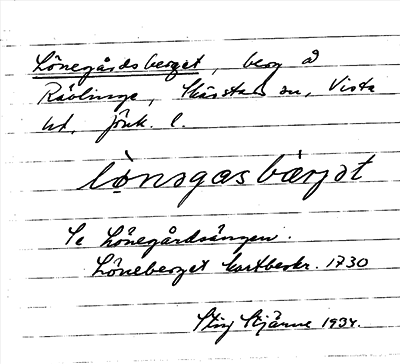 Lönegårdsberget, berg å
Rävlinge, Skärstads sn, Vista
hd, Jönk. l.
lönəgasbärjət
Se Lönegårdsängen.
Löneberget kartbeskr. 1730
Stig Stjärne 1934.